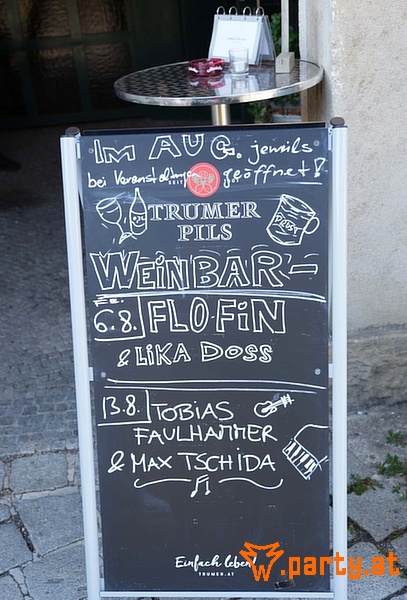 IM AUG. jeweils
bei Veranstaltungen geöffnet!
SEIT
TRUMER
PILS
PROST
WEINBAR-
Fr.
6.8. FLO FIN
& LIKA DOSS
13.8. TOBIAS
FAULHAMMER
& MAX TSCHIDA
Einfach leben!
TRUMER.AT
W.party.at